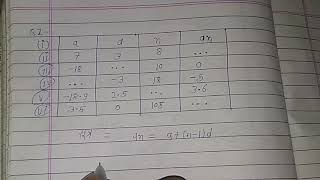 a d n an
(i) 7 3 8 ...
(ii) -18 ... 10 0
(iii) ... -3 18 -5
-18.9 2.5 ... 3.6
3.5 0 105 ...
an = a+(n-1)d